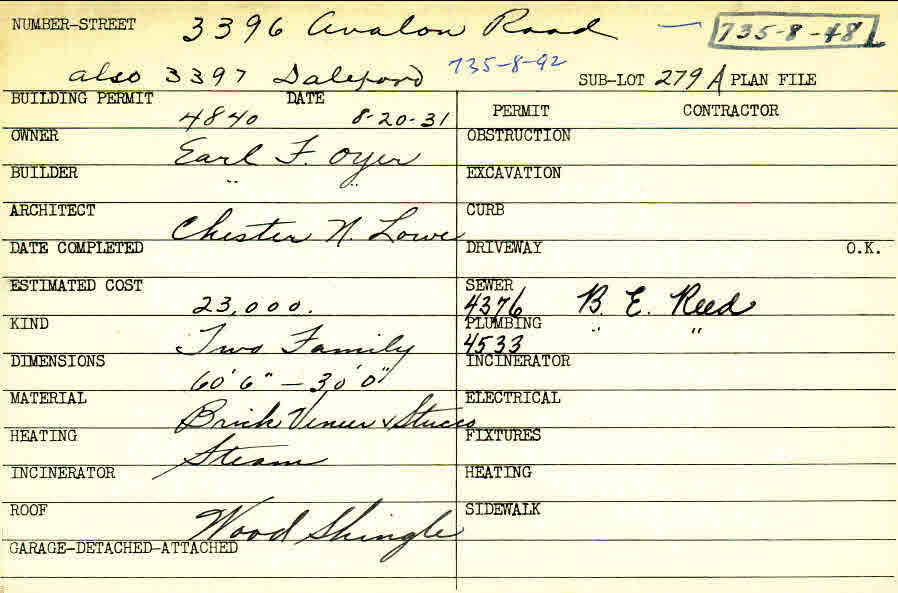 NUMBER-STREET 3396 Avalon Road — 735-8-48
also 3397 Daleford 735-8-92 SUB-LOT 279A PLAN FILE
BUILDING PERMIT DATE PERMIT CONTRACTOR
4840 8-20-31
OWNER Earl F. Oyer OBSTRUCTION
BUILDER " " EXCAVATION
ARCHITECT Chester N. Lowe CURB
DATE COMPLETED DRIVEWAY O.K.
ESTIMATED COST 23,000. SEWER 4376 B. E. Reed
KIND Two Family PLUMBING 4533 " "
DIMENSIONS 60'6" — 30'0" INCINERATOR
MATERIAL Brick Veneer & Stucco ELECTRICAL
HEATING Steam FIXTURES
INCINERATOR HEATING
ROOF Wood Shingle SIDEWALK
GARAGE-DETACHED-ATTACHED